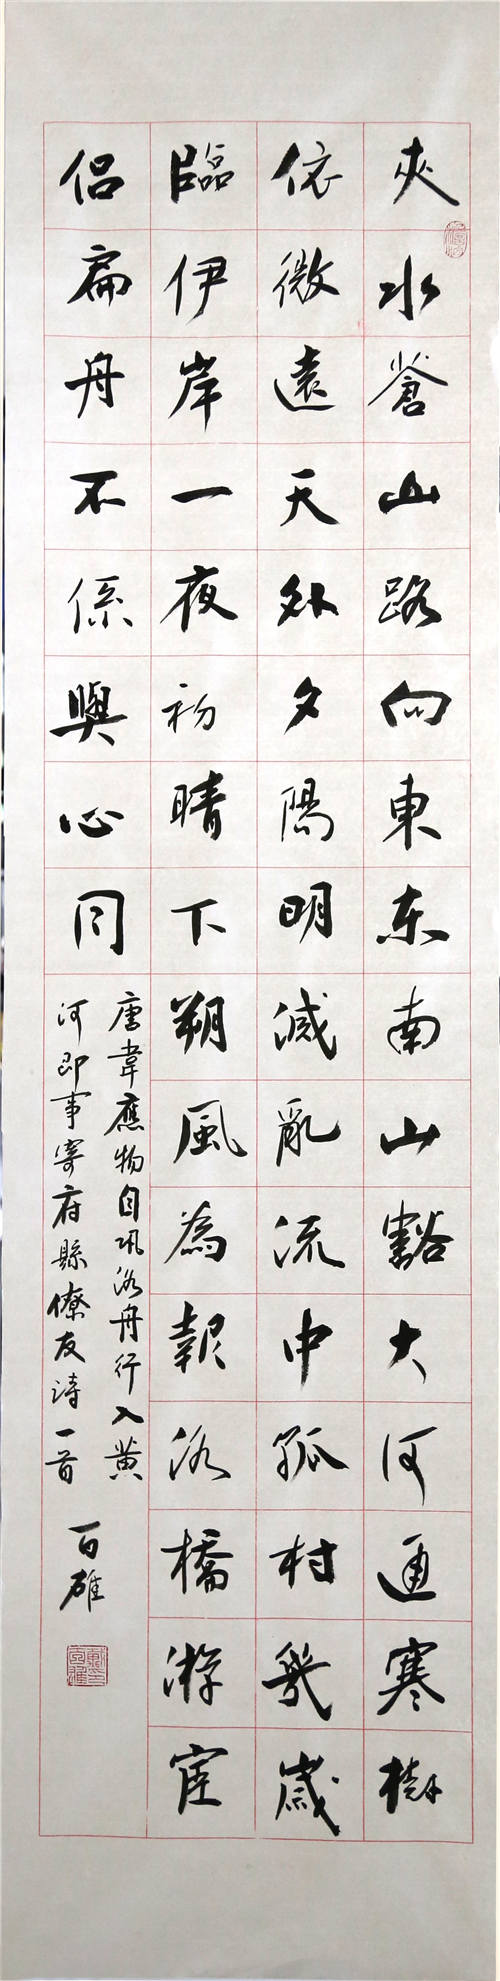 夾水蒼山路向東东南山豁大河通寒樹
依微遠天外夕陽明滅亂流中孤村幾歲
臨伊岸一夜初晴下朔風為報洛橋游宦
侣扁舟不係與心同
唐韋應物自巩洛舟行入黄
河即事寄府縣僚友詩一首
百雄